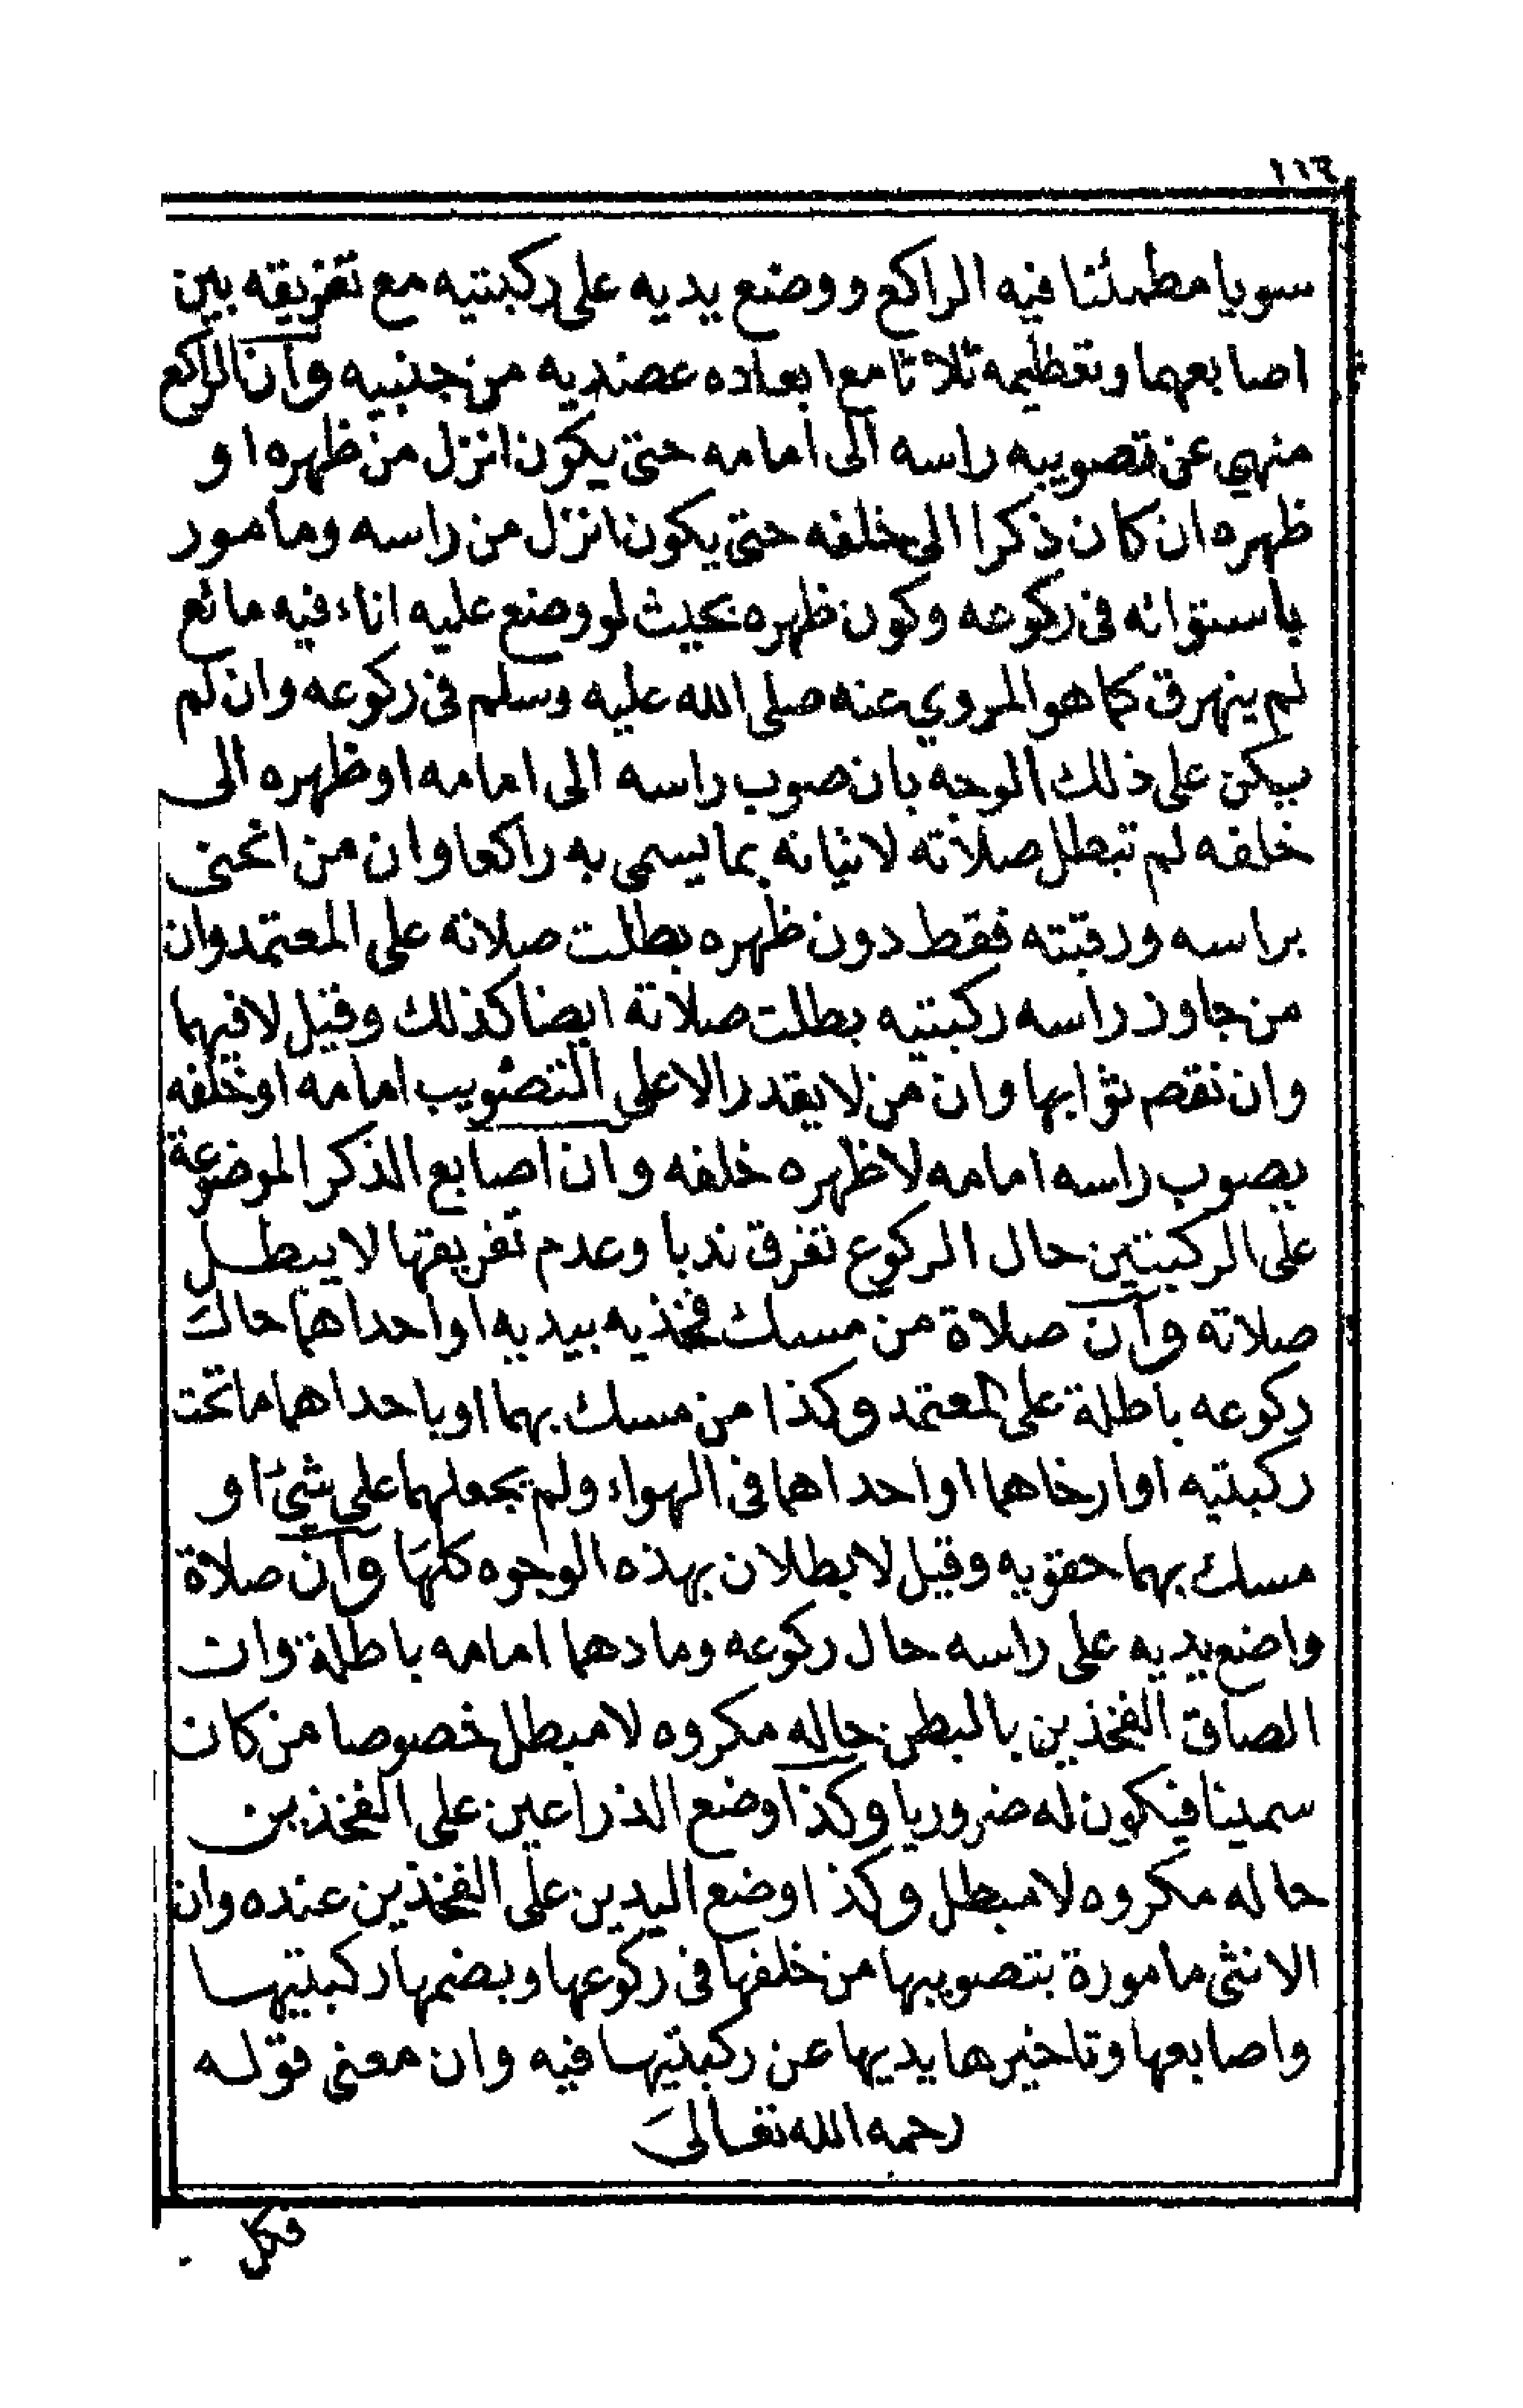 ١١٦
سويا مطمئنا فيه الراكع ووضع يديه على ركبتيه مع تفريقه بين
اصابعهما وتعظيمه ثلاثا مع ابعاده عضديه من جنبيه وان الراكع
منهي عن تصويبه راسه الى امامه حتى يكون انزل من ظهره او
ظهره ان كان ذكرا الى خلفه حتى يكون انزل من راسه ومامور
باستوائه في ركوعه وكون ظهره بحيث لو وضع عليه اناء فيه مائع
لم ينهرق كما هو المروي عنه صلى الله عليه وسلم في ركوعه وان لم
يكن على ذلك الوجه بان صوب راسه الى امامه او ظهره الى
خلفه لم تبطل صلاته لاتيانه بما يسمى به راكعا وان من انحنى
براسه ورقبته فقط دون ظهره بطلت صلاته على المعتمد وان
من جاوز راسه ركبتيه بطلت صلاته ايضا كذلك وقيل لا فيهما
وان نقص ثوابها وان من لا يقدر الا على التصويب امامه او خلفه
يصوب راسه امامه لا ظهره خلفه وان اصابع الذكر الموضوعة
على الركبتين حال الركوع تفرق ندبا وعدم تفريقها لا يبطل
صلاته وان صلاة من مسك فخذيه بيديه او احداهما حال
ركوعه باطلة على المعتمد وكذا من مسك بهما او باحداهما ما تحت
ركبتيه او ارخاهما او احداهما في الهواء ولم يجعلهما على شيء او
مسك بهما حقويه وقيل لا بطلان بهذه الوجوه كلها وان صلاة
واضع يديه على راسه حال ركوعه ومادهما امامه باطلة وان
الصاق الفخذين بالبطن حاله مكروه لا مبطل خصوصا من كان
سمينا فيكون له ضروريا وكذا وضع الذراعين على الفخذين
حاله مكروه لا مبطل وكذا وضع اليدين على الفخذين عنده وان
الانثى مامورة بتصويبها من خلفها في ركوعها وبضمها ركبتيها
واصابعها وتاخيرها يديها عن ركبتيها فيه وان معنى قوله
رحمه الله تعالى
فكل